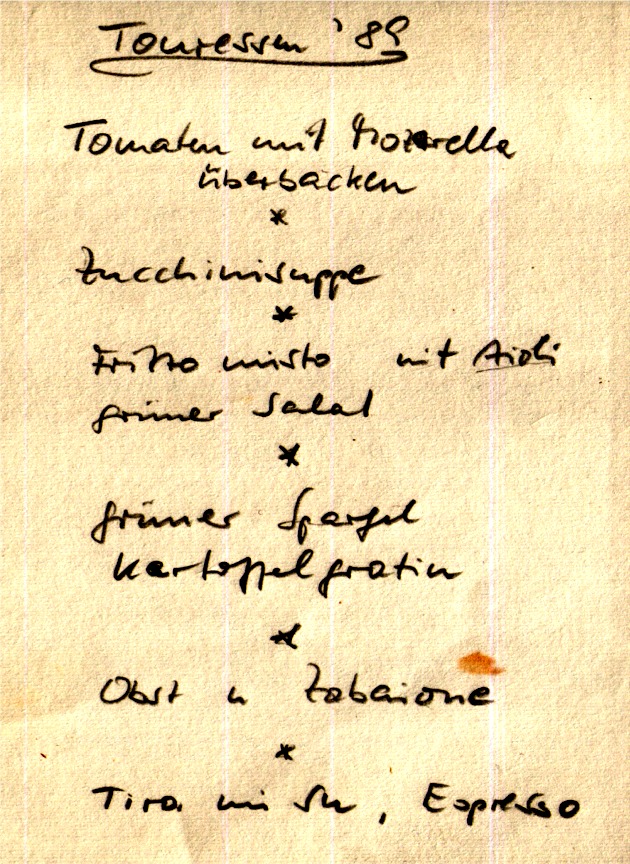 Touressen '89
Tomaten mit Mozarella
überbacken
*
Zucchinisuppe
*
Fritto misto mit Aioli
grüner Salat
*
grüner Spargel
Kartoffelgratin
*
Obst u Zabaione
*
Tira mi su, Espresso